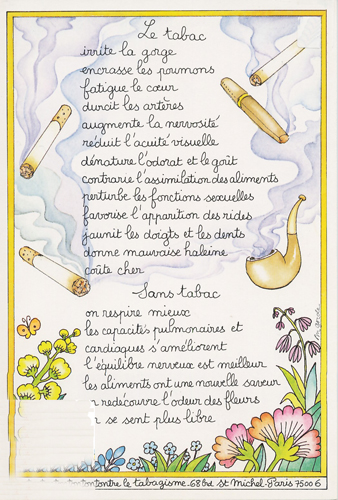 Le tabac
irrite la gorge
encrasse les poumons
fatigue le cœur
durcit les artères
augmente la nervosité
réduit l'acuité visuelle
dénature l'odorat et le goût
contrarie l'assimilation des aliments
perturbe les fonctions sexuelles
favorise l'apparition des rides
jaunit les doigts et les dents
donne mauvaise haleine
coûte cher
Sans tabac
on respire mieux
les capacités pulmonaires et
cardiaques s'améliorent
l'équilibre nerveux est meilleur
les aliments ont une nouvelle saveur
on redécouvre l'odeur des fleurs
on se sent plus libre
contre le tabagisme. 68 bd St Michel-Paris 75006